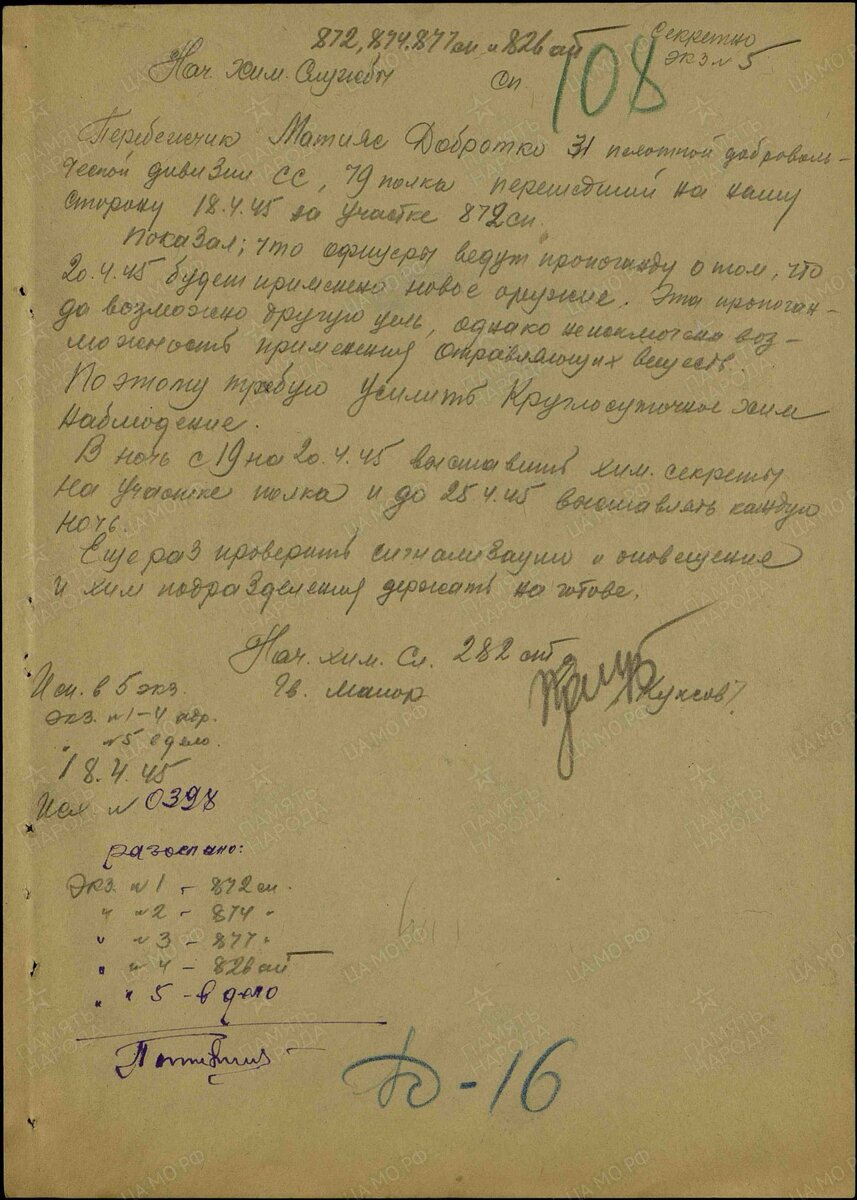 872, 874, 877 сп и 826 ап
Секретно
Экз № 5
Нач. Хим. Службы сп
108
Перебежчик Матияс Добротко 31 пехотной доброволь-
ческой дивизии СС, 79 полка перешедший на нашу
сторону 18.4.45 на участке 872 сп.
Показал; что офицеры ведут пропоганду о том, что
20.4.45 будет применено новое оружие. Эта пропоган-
да возможно другую цель, однако неисключена воз-
можность применения отравляющих веществ.
Поэтому требую усилить Круглосуточное хим
наблюдение.
В ночь с 19 на 20.4.45 выставить хим. секреты
на участке полка и до 25.4.45 выставлять каждую
ночь.
Еще раз проверить сигнализацию и оповещения
и хим подразделения держать на готове.
Нач. хим. Сл. 282 сд
Гв. майор
Исп. в 5 экз.
Экз. №1-4 адр.
" №5 в дело.
18.4.45
Исх № 0398
разослано:
Экз. №1 - 872 сп.
" №2 - 874 "
" №3 - 877 "
" №4 - 826 ап
" " 5 - в дело
-16
ПАМЯТЬ НАРОДА
ЦАМО.РФ